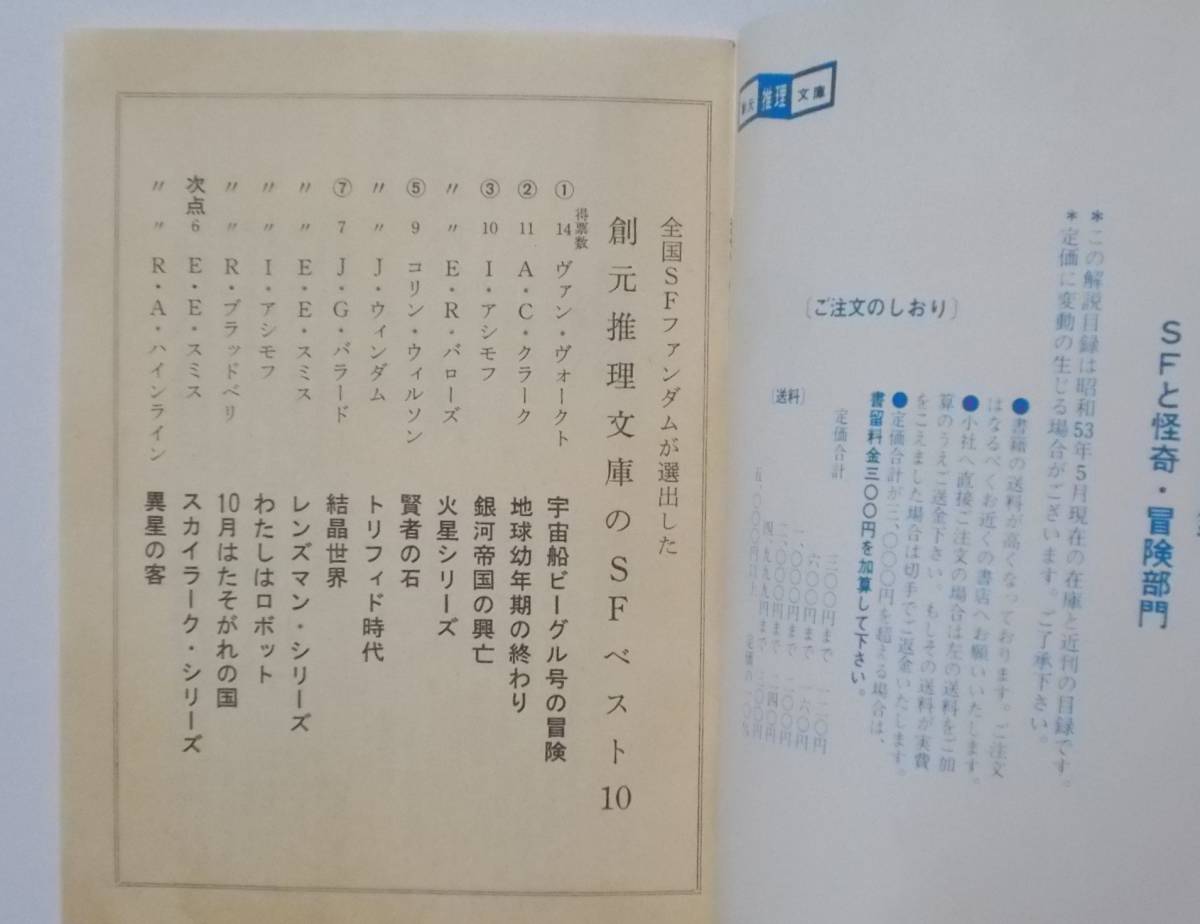 SFと怪奇・冒険部門
*この解説目録は昭和53年5月現在の在庫と近刊の目録です。
*定価に変動の生じる場合がございます。ご了承下さい。
〔ご注文のしおり〕
●書籍の送料が高くなっております。ご注文
はなるべくお近くの書店へお願いいたします。
●小社へ直接ご注文の場合は左の送料をご加
算のうえご送金下さい。もしその送料が実費
をこえました場合は切手でご返金いたします。
●定価合計が三、〇〇〇円を超える場合は、
書留料金三〇〇円を加算して下さい。
定価合計
〔送料〕
三〇〇円まで 一二〇円
六〇〇円まで 一六〇円
一、〇〇〇円まで 二〇〇円
二、〇〇〇円まで 二四〇円
四、九九九円まで 三〇〇円
五、〇〇〇円以上 定価の一〇%
推理文庫
全国SFファンダムが選出した
創元推理文庫のSFベスト10
得票数
① 14 ヴァン・ヴォークト 宇宙船ビーグル号の冒険
② 11 A・C・クラーク 地球幼年期の終わり
③ 10 I・アシモフ 銀河帝国の興亡
〃 〃 E・R・バローズ 火星シリーズ
⑤ 9 コリン・ウィルソン 賢者の石
〃 〃 J・ウィンダム トリフィド時代
⑦ 7 J・G・バラード 結晶世界
〃 〃 E・E・スミス レンズマン・シリーズ
〃 〃 I・アシモフ わたしはロボット
〃 〃 R・ブラッドベリ 10月はたそがれの国
次点 6 E・E・スミス スカイラーク・シリーズ
〃 〃 R・A・ハインライン 異星の客